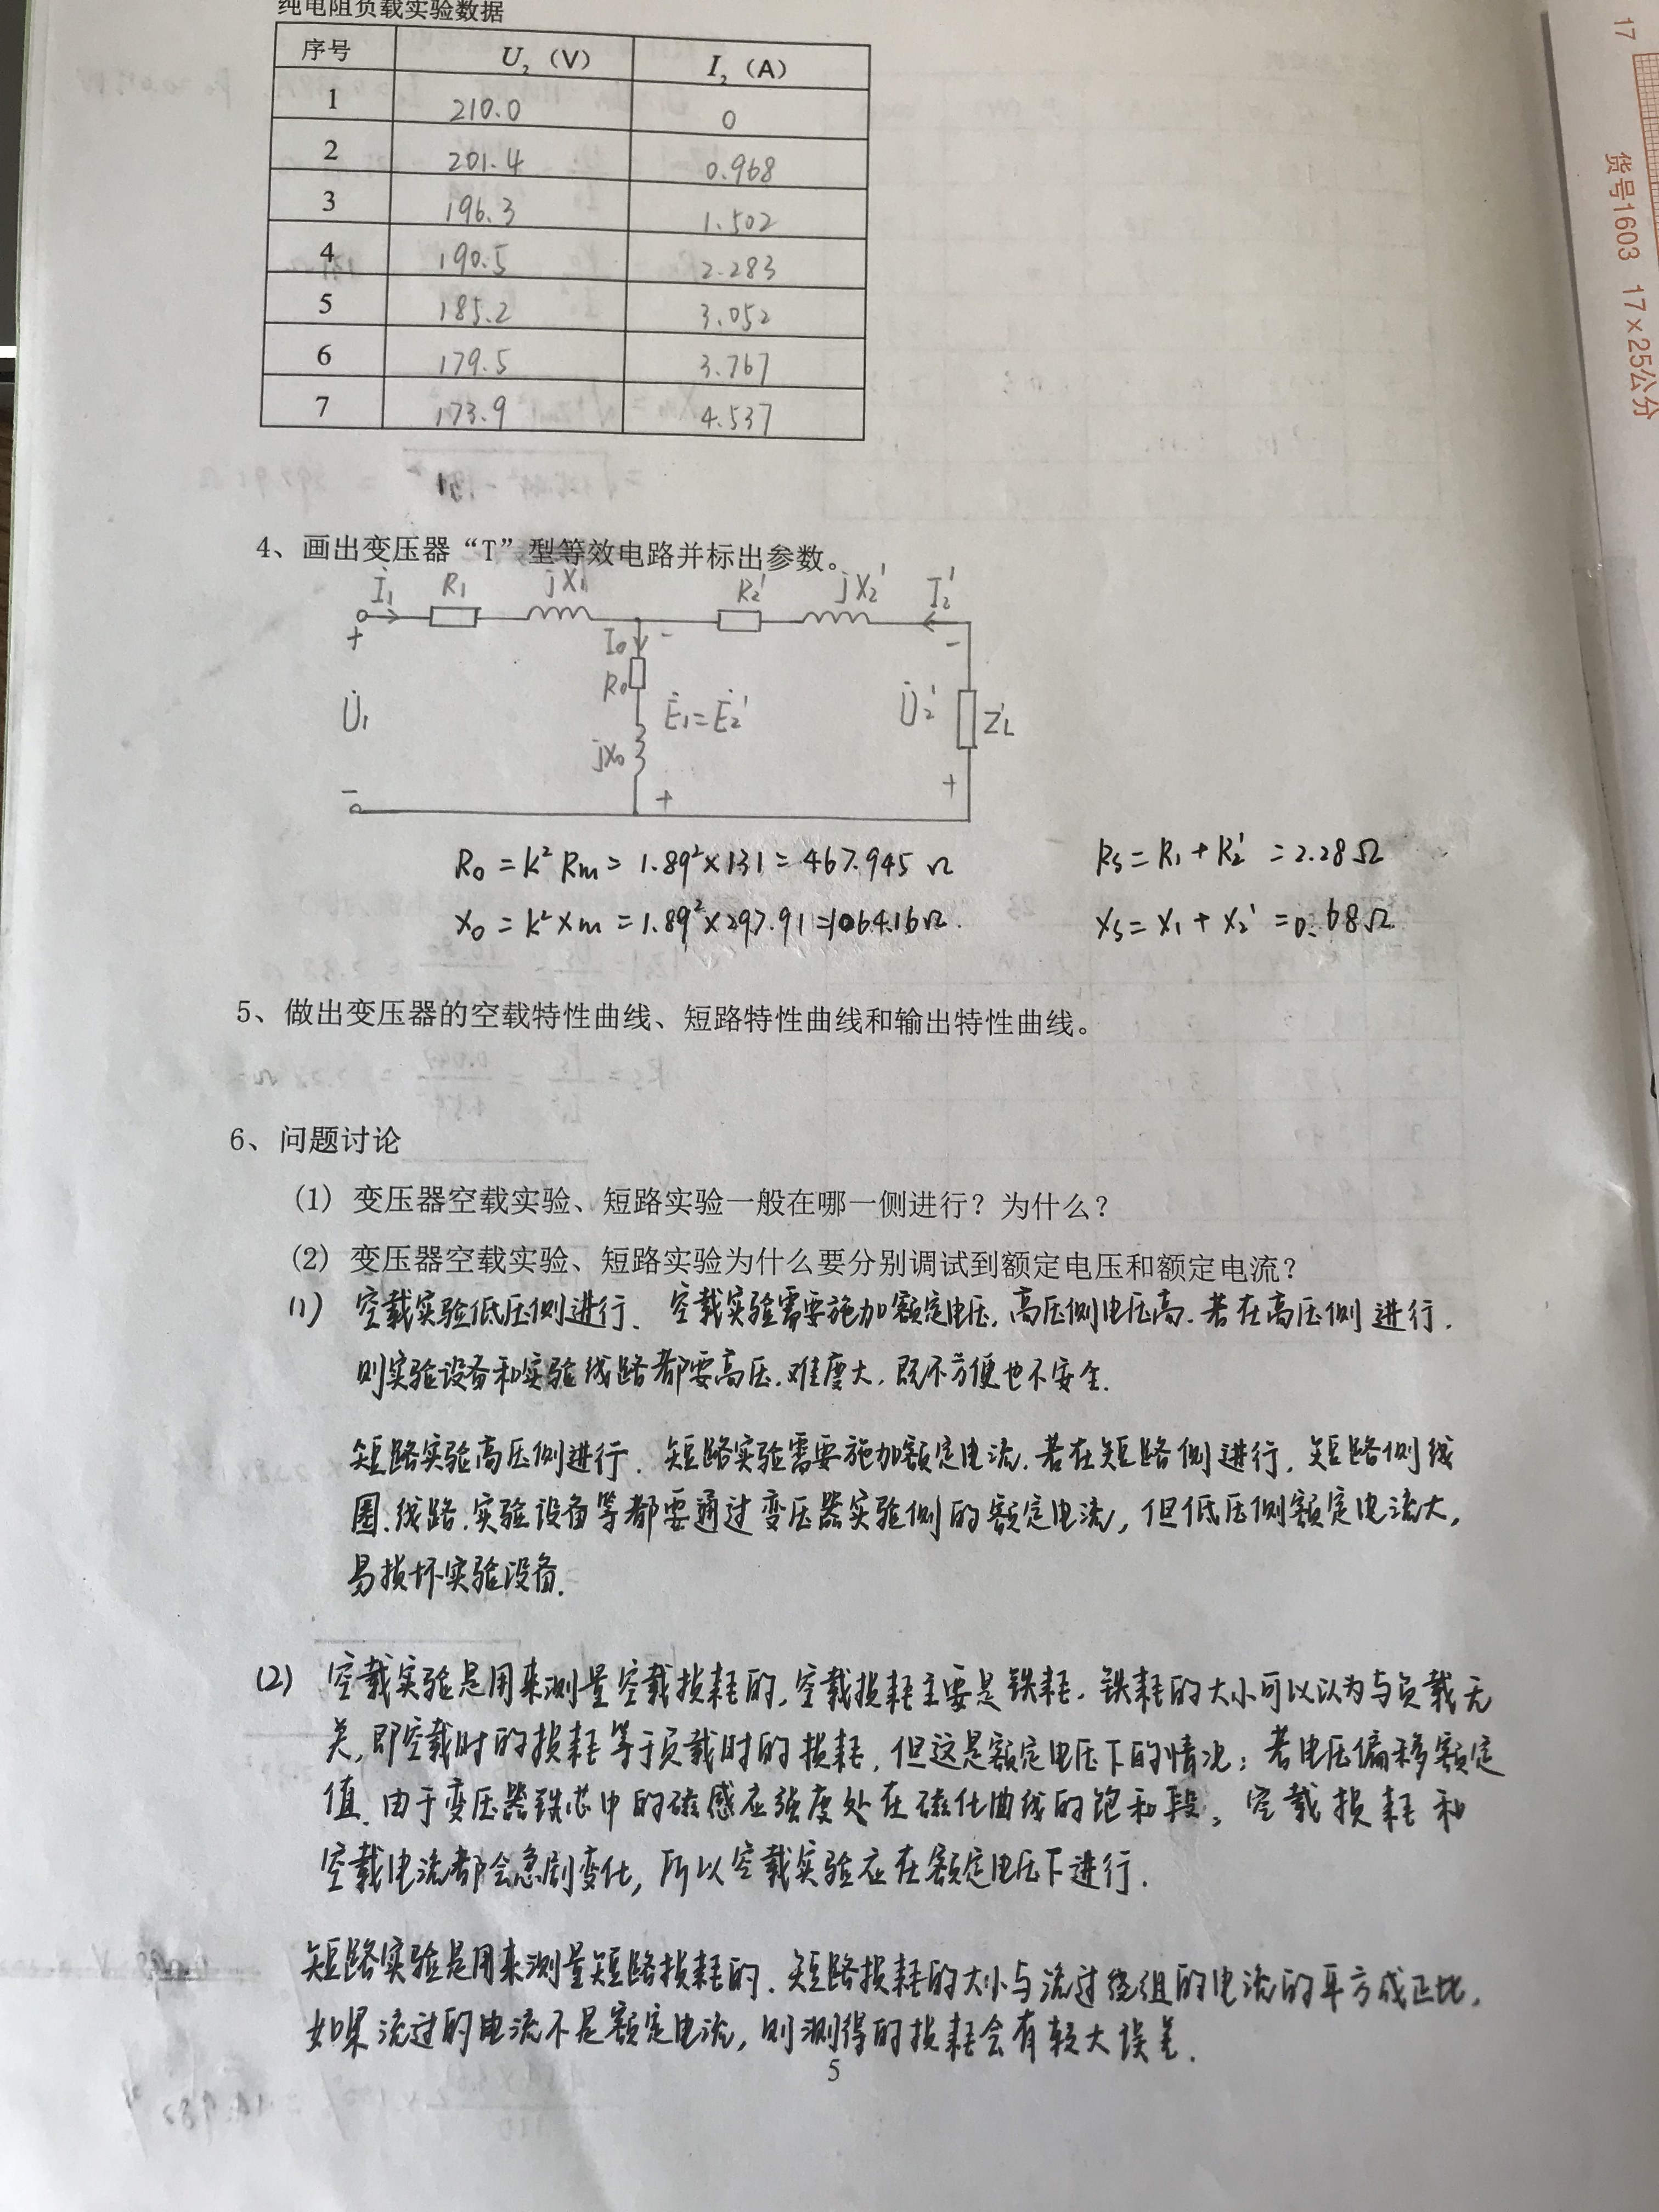 纯电阻负载实验数据
序号 U₂（V） I₂（A）
1 210.0 0
2 201.4 0.968
3 196.3 1.502
4 190.5 2.283
5 185.2 3.052
6 179.5 3.767
7 173.9 4.537
4、画出变压器“T”型等效电路并标出参数。
İ₁ R₁ jX₁ R₂′ jX₂′ İ₂′
+ İ₀ - -
R₀
U̇₁ Ė₁=Ė₂′ U̇₂′ Z′L
jX₀
- + +
R₀ = k² Rm = 1.89²×131 = 467.945 Ω Rs = R₁ + R₂′ = 2.28Ω
X₀ = k² Xm = 1.89²×297.91=1064.16Ω. Xs = X₁ + X₂′ = 0.68Ω
5、做出变压器的空载特性曲线、短路特性曲线和输出特性曲线。
6、问题讨论
(1) 变压器空载实验、短路实验一般在哪一侧进行？为什么？
(2) 变压器空载实验、短路实验为什么要分别调试到额定电压和额定电流？
(1) 空载实验低压侧进行. 空载实验需要施加额定电压,高压侧电压高.若在高压侧进行.
则实验设备和实验线路都要高压.难度大.既不方便也不安全.
短路实验高压侧进行. 短路实验需要施加额定电流.若在短路侧进行.短路侧线
圈.线路.实验设备等都要通过变压器实验侧的额定电流,但低压侧额定电流大,
易损坏实验设备.
(2) 空载实验是用来测量空载损耗的,空载损耗主要是铁耗.铁耗的大小可以认为与负载无
关,即空载时的损耗等于负载时的损耗,但这是额定电压下的情况;若电压偏移额定
值.由于变压器铁芯中的磁感应强度处在磁化曲线的饱和段,空载损耗和
空载电流都会急剧变化,所以空载实验应在额定电压下进行.
短路实验是用来测量短路损耗的.短路损耗的大小与流过绕组的电流的平方成正比,
如果流过的电流不是额定电流,则测得的损耗会有较大误差.
5
17
货号1603 17×25公分